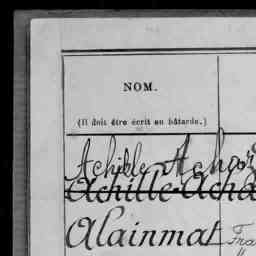 NOM.
(Il doit être écrit en bâtarde.)
Achille
Achille
Alainmat
Fra